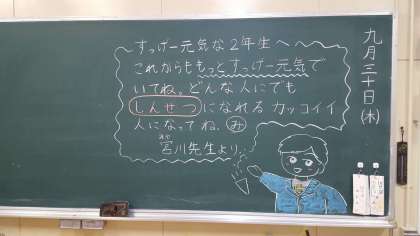 九月三十日(木)
すっげー元気な2年生へ
これからももっとすっげー元気で
いてね。どんな人にでも
しんせつになれるカッコイイ
人になってね。み
みや
宮川先生より